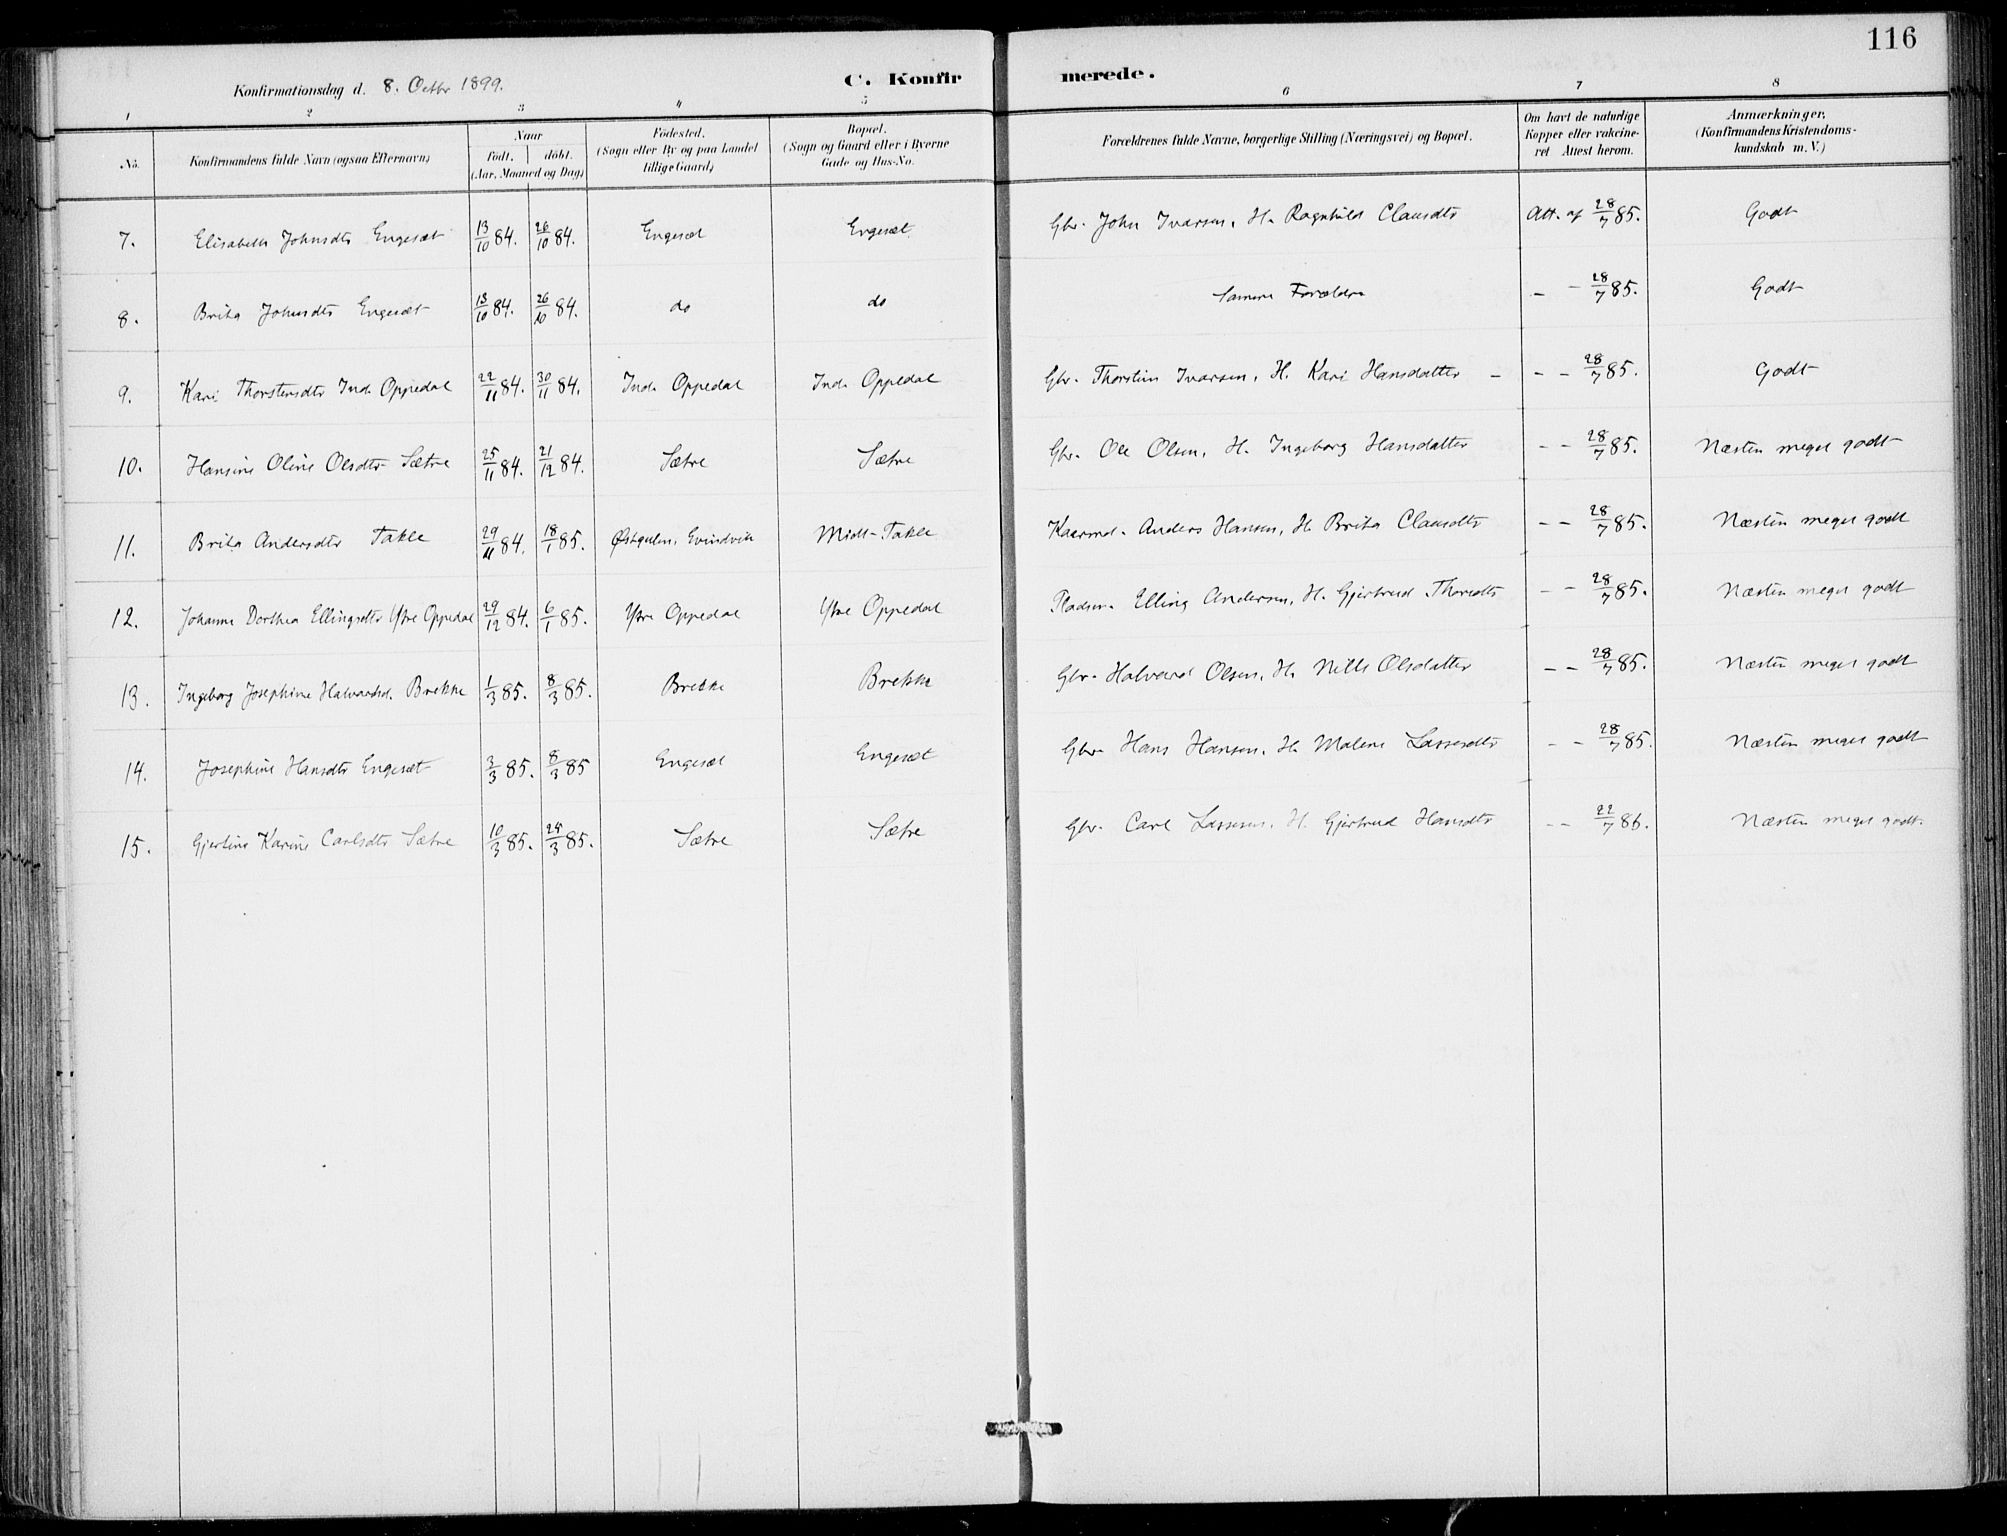 116
Konfirmationsdag d. 8. Octbr 1899.
C. Konfirmerede.
1 2 3 4 5 6 7 8
No. | Konfirmandens fulde Navn (ogsaa Efternavn) | Naar födt. | döbt. (Aar, Maaned og Dag) | Födested. (Sogn eller By og paa Landet tillige Gaard) | Bopæl. (Sogn og Gaard eller i Byerne Gade og Hus-No. | Forældrenes fulde Navne, borgerlige Stilling (Næringsvei) og Bopæl. | Om havt de naturlige Kopper eller vakcineret Attest herom. | Anmærkninger, (Konfirmandens Kristendomskundskab m. V.)
7. Elisabeth Johnsdtr Engesæt 13/10 84. 26/10 84. Engesæt Engesæt Gbr. John Ivarsen, H. Ragnhild Clausdtr Att. af 28/7 85. Godt
8. Brita Johnsdtr Engesæt 13/10 84. 26/10 84. do do Samme Forældre - - 28/7 85. Godt
9. Kari Thorstensdtr Ind. Oppedal 22/11 84. 30/11 84. Ind. Oppedal Ind. Oppedal Gbr. Thorstein Ivarsen, H. Kari Hansdatter - - - 28/7 85. Godt
10. Hansine Oline Olsdtr Sætre 25/11 84. 21/12 84. Sætre Sætre Gbr. Ole Olsen, H. Ingeborg Hansdatter - - 28/7 85. Næsten meget godt
11. Brita Andersdtr Takle 29/11 84. 18/1 85. Østgulen, Evindvik Midt-Takle Kaarmd. Anders Hansen, H. Brita Clausdtr - - 28/7 85. Næsten meget godt
12. Johanne Dorthea Ellingsdtr Ytre Oppedal 29/12 84. 6/1 85. Ytre Oppedal Ytre Oppedal Pladsm. Elling Andersen, H. Gjertrud Thoresdtr - - 28/7 85. Næsten meget godt
13. Ingeborg Josephine Halvardsd. Brekke 1/3 85. 8/3 85. Brekke Brekke Gbr. Halvard Olsen, H. Nille Olsdatter - - 28/7 85. Næsten meget godt
14. Josephine Hansdtr Engesæt 3/3 85. 8/3 85 Engesæt Engesæt Gbr. Hans Hansen, H. Malene Lassesdtr - - 28/7 85. Næsten meget godt
15. Gjertine Karine Carlsdtr Sætre 10/3 85. 25/3 85. Sætre Sætre Gbr. Carl Lassesen, H. Gjertrud Hansdtr - - 22/7 86. Næsten meget godt.